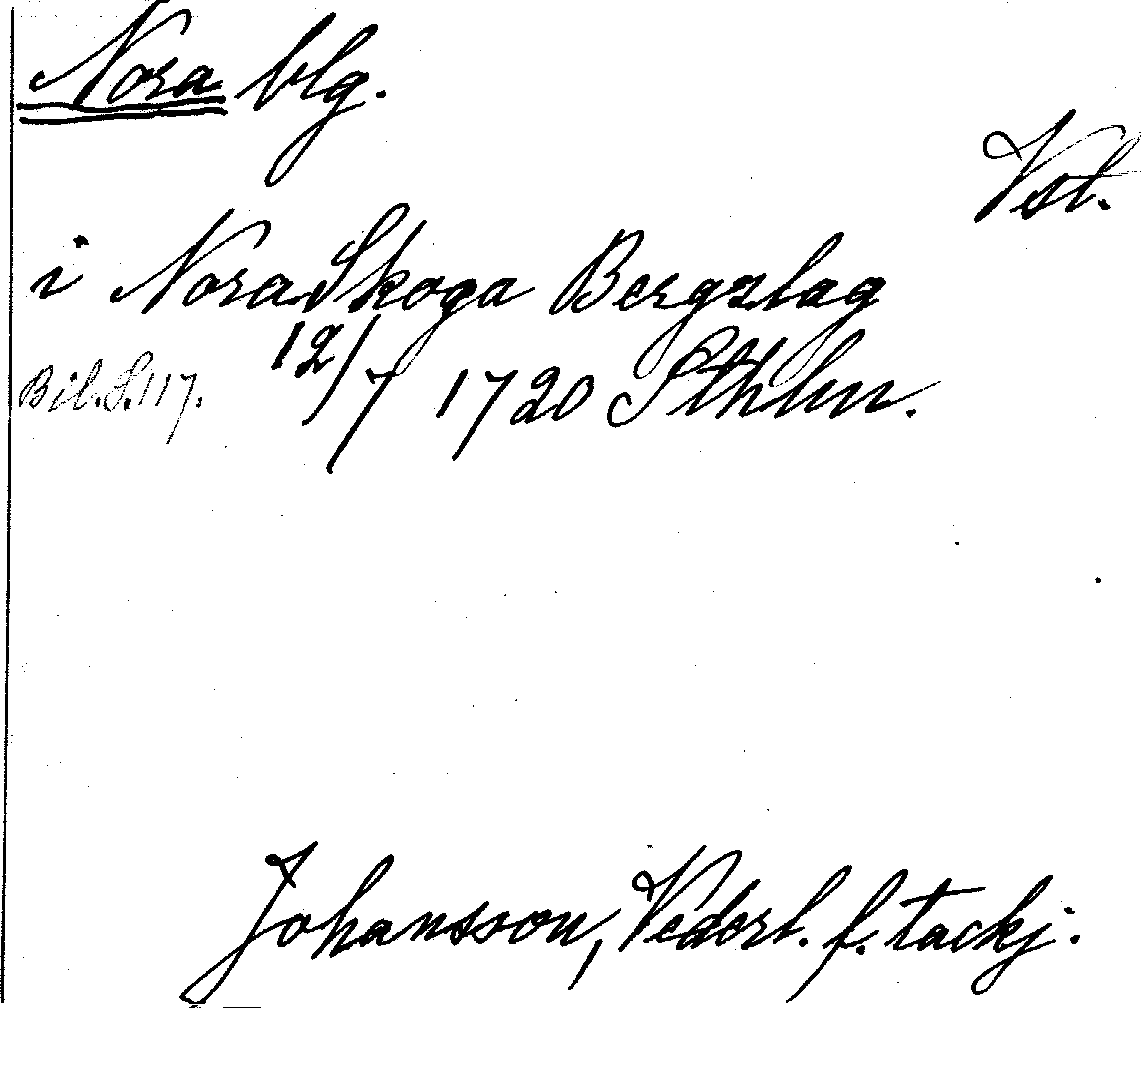 Nora blg.
Vstl.
i Nora Skoga Bergslag
Bil. S. 117. 12/7 1720 Sthlm.
Johansson, Vederl. f. tackj.